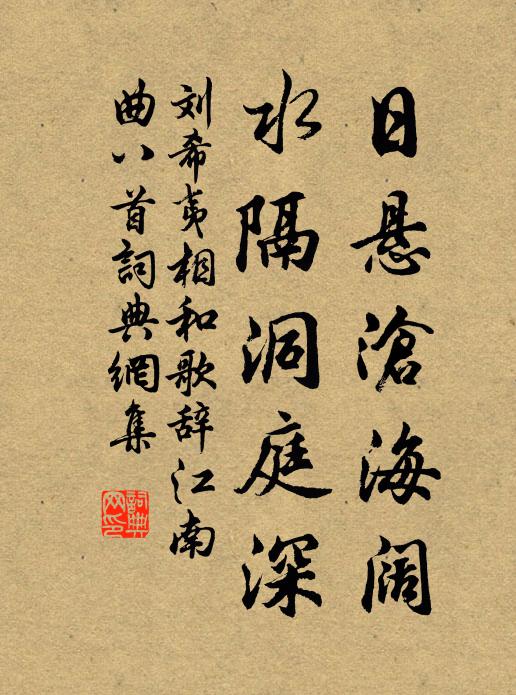 日悬滄海阔
水隔洞庭深
刘希夷相和歌辞江南
曲八首詞典網集
詞典網印